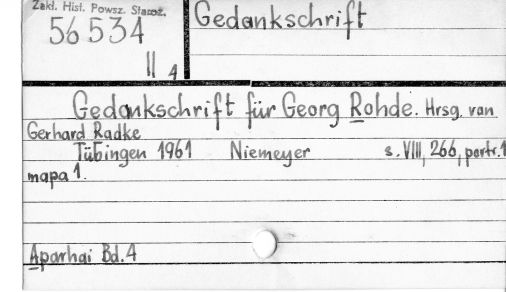 Zakł. Hist. Powsz. Staroż.
56534
II 4
Gedankschrift
Gedankschrift für Georg Rohde. Hrsg. van
Gerhard Radke
Tübingen 1961 Niemeyer s. VIII, 266, portr. 1
mapa 1.
Aparhai Bd. 4